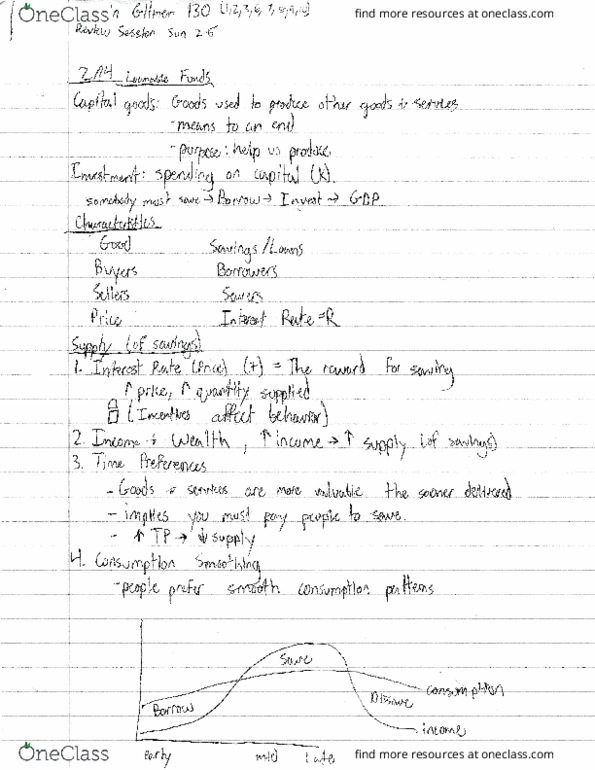 OneClass
find more resources at oneclass.com
Gilmer 130
Review Session Sun 2-5
Loanable Funds
Capital goods: Goods used to produce other goods & services
- means to an end
- purpose: help us produce
Investment: spending on capital (K).
somebody must save → Borrow → Invest → GDP
Characteristics
Good Savings/Loans
Buyers Borrowers
Sellers Savers
Price Interest Rate = R
Supply (of savings)
1. Interest Rate (Price) (+) = The reward for saving
↑ price, ↑ quantity supplied
(Incentives affect behavior)
2. Income & Wealth, ↑ income → ↑ supply (of savings)
3. Time Preferences
- Goods & services are more valuable the sooner delivered
- implies you must pay people to save.
- ↑ TP → ↓ supply
4. Consumption Smoothing
- people prefer smooth consumption patterns
Save
Borrow
Dissave
consumption
income
early mid late
OneClass
find more resources at oneclass.com